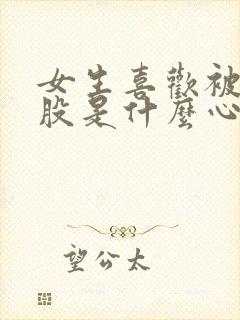 女生喜歡被
股是什麼心
望公太